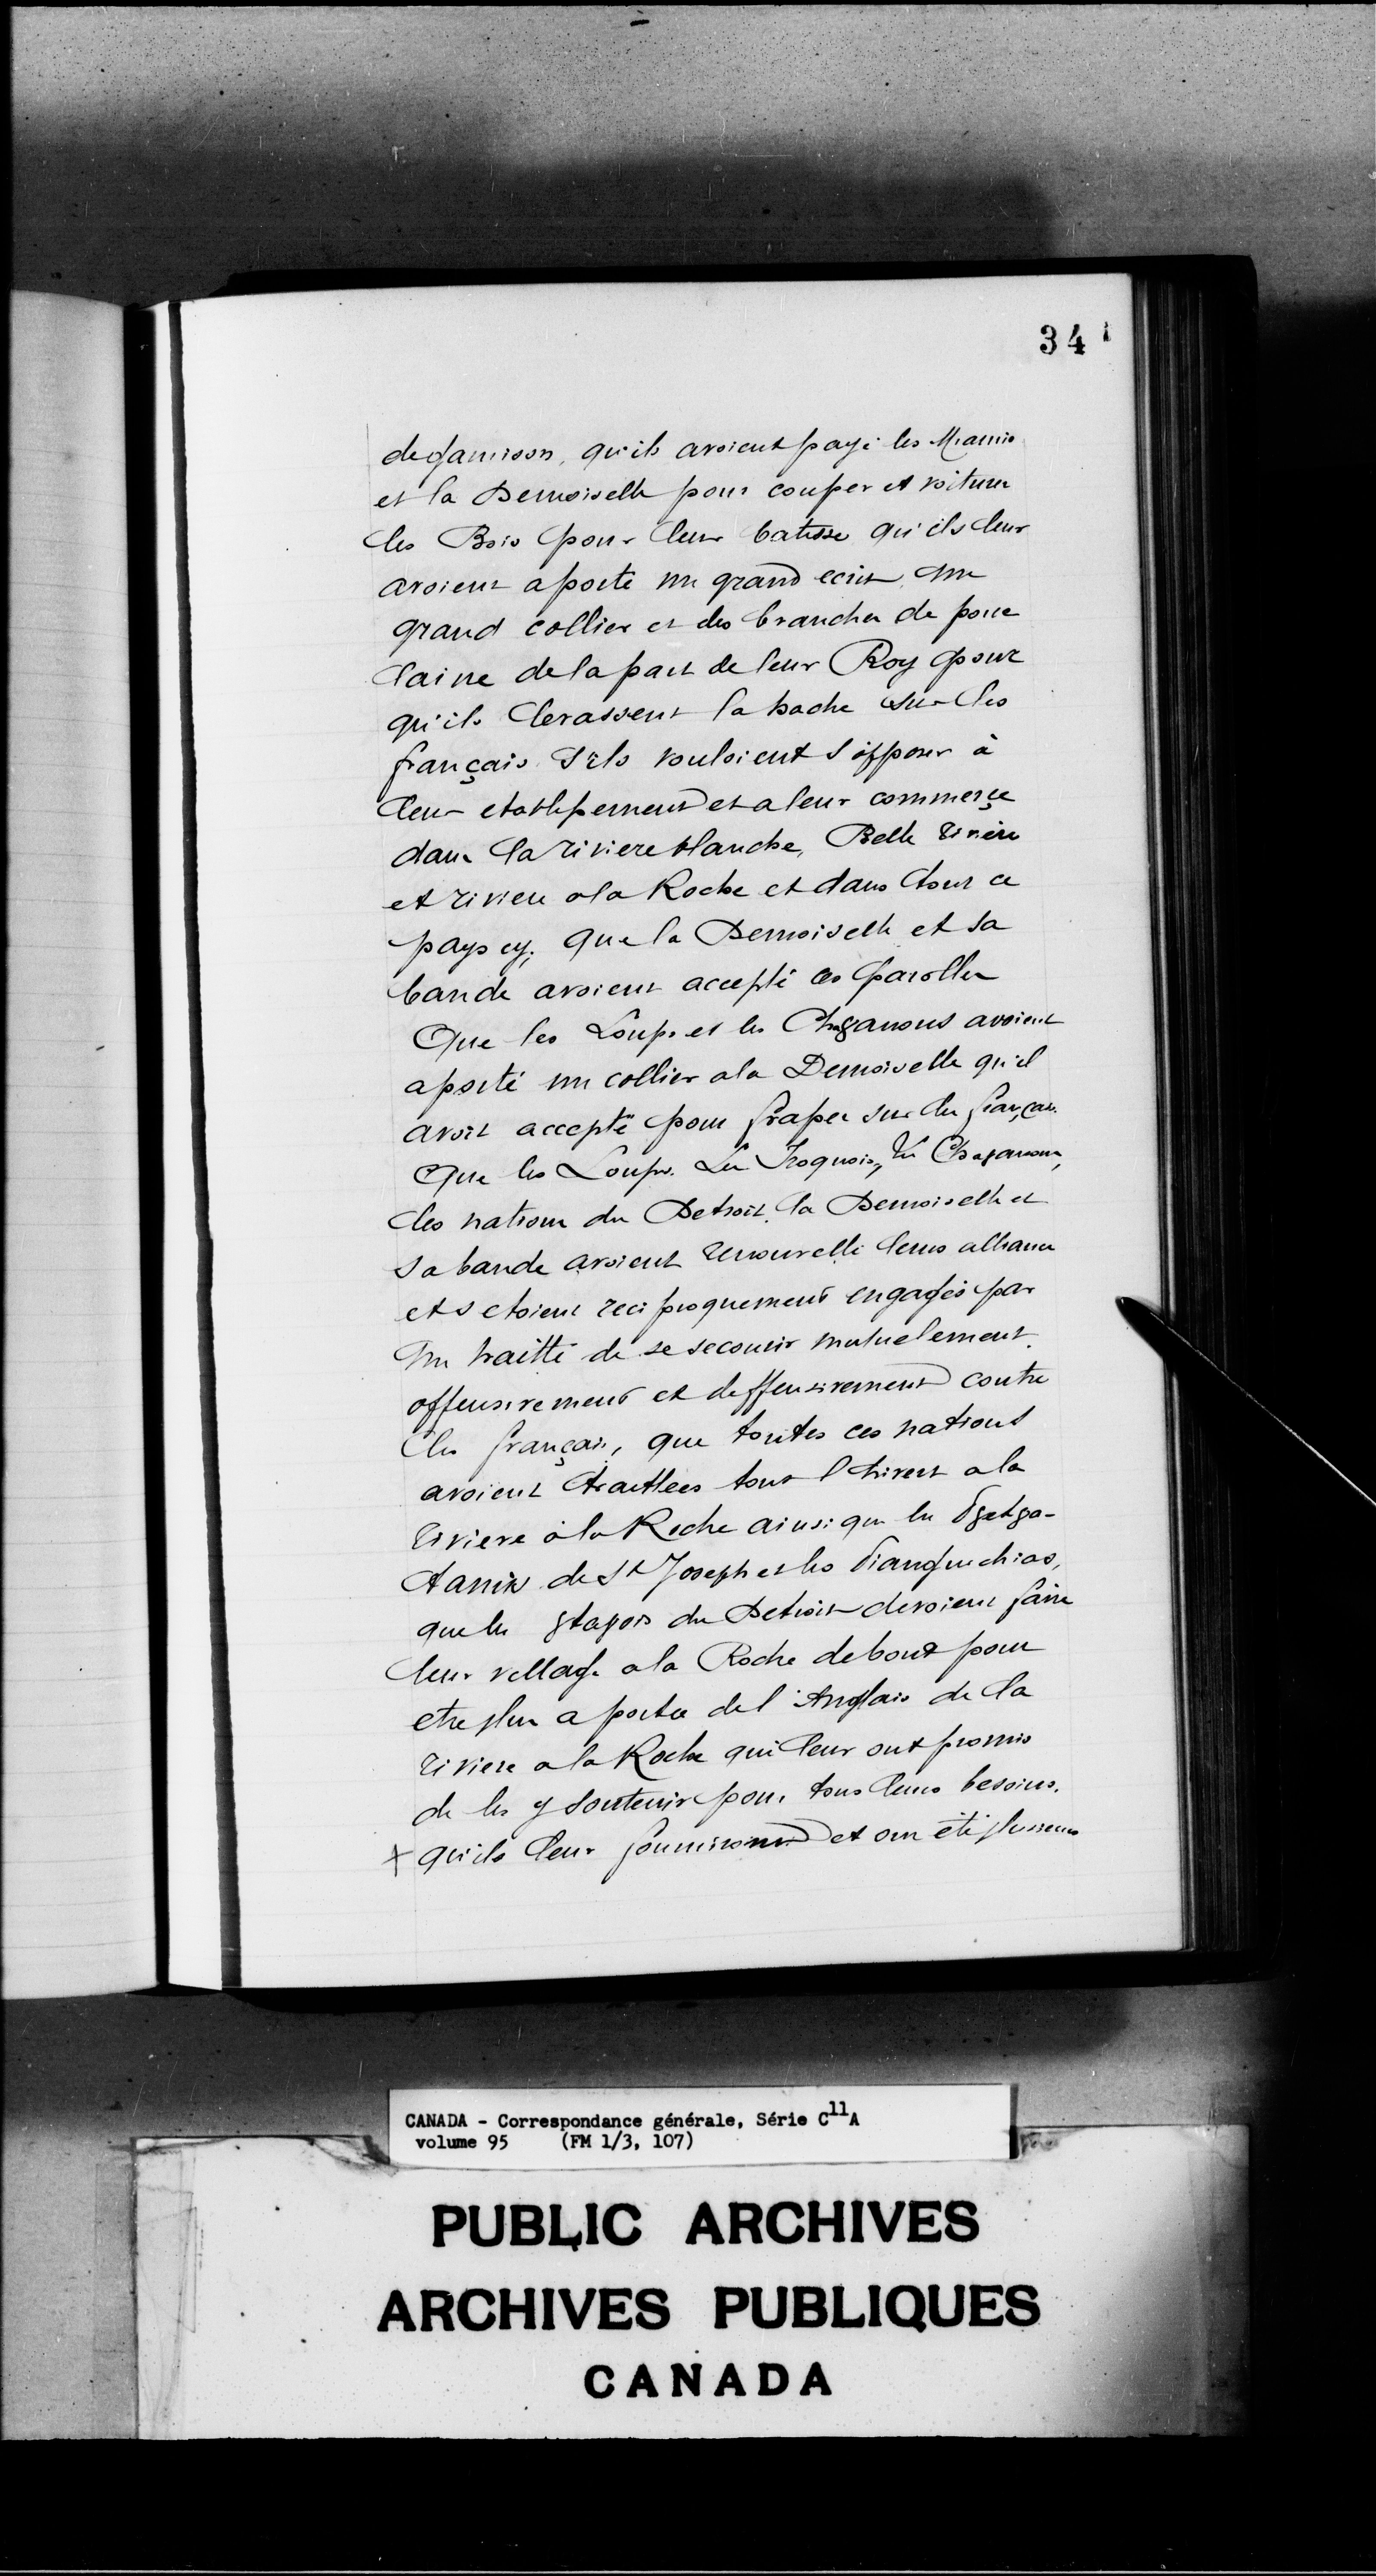 341
de garnison, qu'ils avoient payé les Miamis
et la Demoiselle pour couper et voiturer
les Bois pour leur batisse qu'ils leur
avoient aporté un grand ecrit, un
grand collier et des branches de porce
laine de la part de leur Roy pour
qu'ils levassent la hache sur les
français s'ils vouloient s'opposer à
leur etablissement et a leur commerce
dans la riviere blanche, Belle riviere
et riviere a la Roche et dans tout ce
pays cy, que la Demoiselle et sa
bande avoient accepté ces parolles
Que les Loups et les Chaganous avoient
aporté un collier a la Demoiselle qu'il
avoit accepté pour fraper sur les françois.
Que les Loups. Les Iroquois, les Chaganous,
les nations du Detroit, la Demoiselle et
sa bande avoient renouvellé leurs alliance
et s etoient reciproquement engagés par
un traitté de se secourir mutuelement.
offensivement et deffensivement contre
les français, que toutes ces nations
avoient traittées tout l hivert a la
riviere à la Roche ainsi que les
de St Joseph et les Pianguichias,
que les 8ta8ois du Detroit devoient faire
leur village a la Roche debout pour
etre plus a portée de l'Anglais de la
riviere a la Roche qui leur ont promis
de les y soutenir pour tous leurs besoins.
x qu'ils leur fourniront et on été plusieurs
CANADA - Correspondance générale, Série C11A
volume 95 (FM 1/3, 107)
PUBLIC ARCHIVES
ARCHIVES PUBLIQUES
CANADA